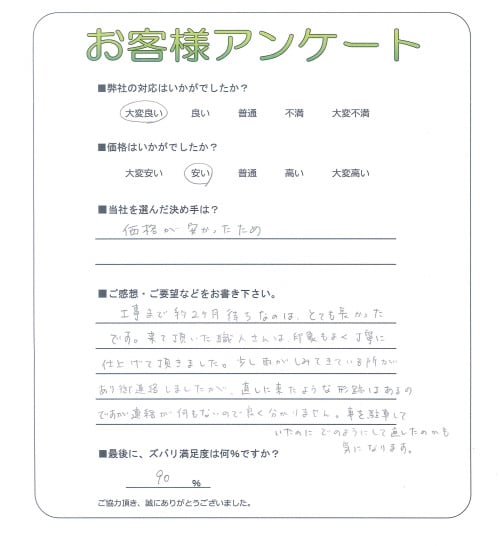 お客様アンケート
■弊社の対応はいかがでしたか？
大変良い 良い 普通 不満 大変不満
■価格はいかがでしたか？
大変安い 安い 普通 高い 大変高い
■当社を選んだ決め手は？
価格が安かったため
■ご感想・ご要望などをお書き下さい。
工事まで約2ヶ月待ちなのは、とても長かった
です。来て頂いた職人さんは、印象もよく丁寧に
仕上げて頂きました。少し雨がしみてきている所が
あり御連絡しましたが、直しに来たような形跡はあるの
ですが連絡が何もないので良く分かりません。車を駐車して
いたのにどのようにして直したのかも
気になります。
■最後に、ズバリ満足度は何％ですか？
90 %
ご協力頂き、誠にありがとうございました。